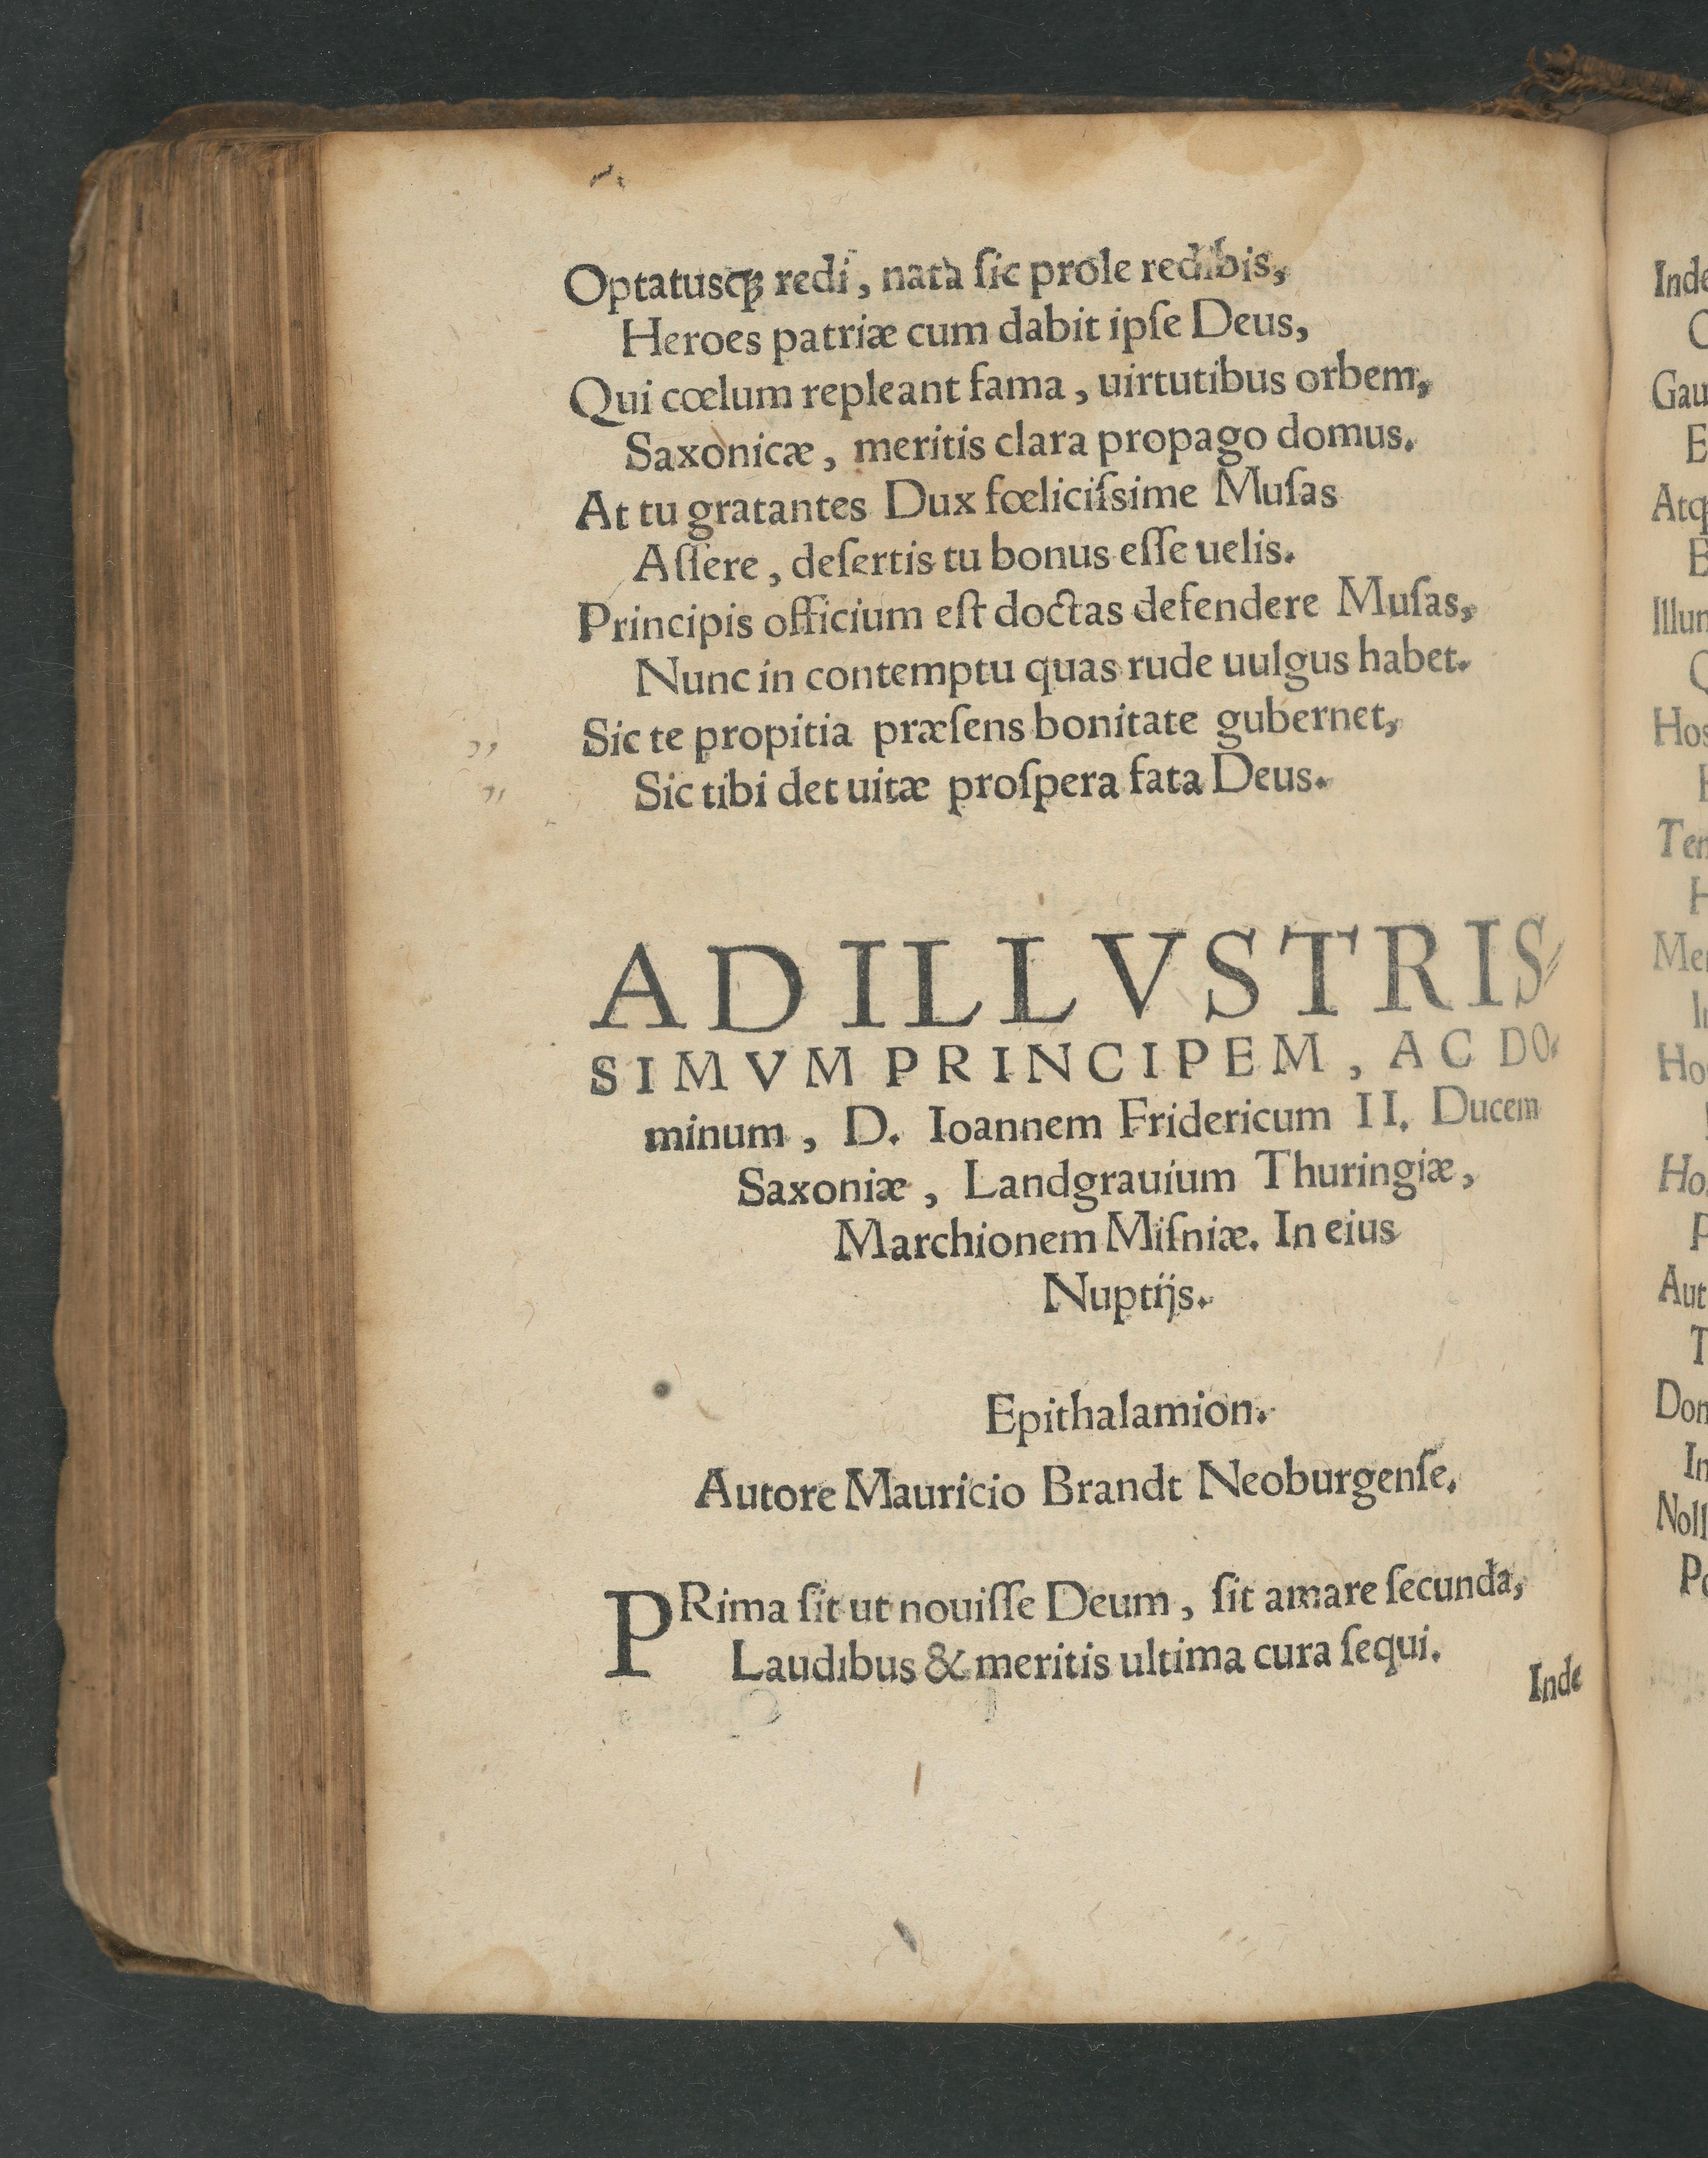 Optatusq́ꝫ redi, nata ſic prole redibis,
Heroes patriæ cum dabit ipſe Deus,
Qui cœlum repleant fama, uirtutibus orbem,
Saxonicæ, meritis clara propago domus.
At tu gratantes Dux fœliciſsime Muſas
Aſſere, deſertis tu bonus eſſe uelis.
Principis officium eſt doctas defendere Muſas,
Nunc in contemptu quas rude uulgus habet.
,, Sic te propitia præſens bonitate gubernet,
,, Sic tibi det uitæ proſpera fata Deus.
AD ILLVSTRIS⸗
SIMVM PRINCIPEM, AC DO⸗
minum, D. Ioannem Fridericum II. Ducem
Saxoniæ, Landgrauium Thuringiæ,
Marchionem Miſniæ. In eius
Nuptijs.
Epithalamion.
Autore Mauricio Brandt Neoburgenſe.
PRima ſit ut nouiſſe Deum, ſit amare ſecunda,
Laudibus & meritis ultima cura ſequi.
Inde
Inde
Gau
Atq
Illum
Hos
Ten
Mer
Hon
Hos
Aut
T
Don
In
Noll
Po